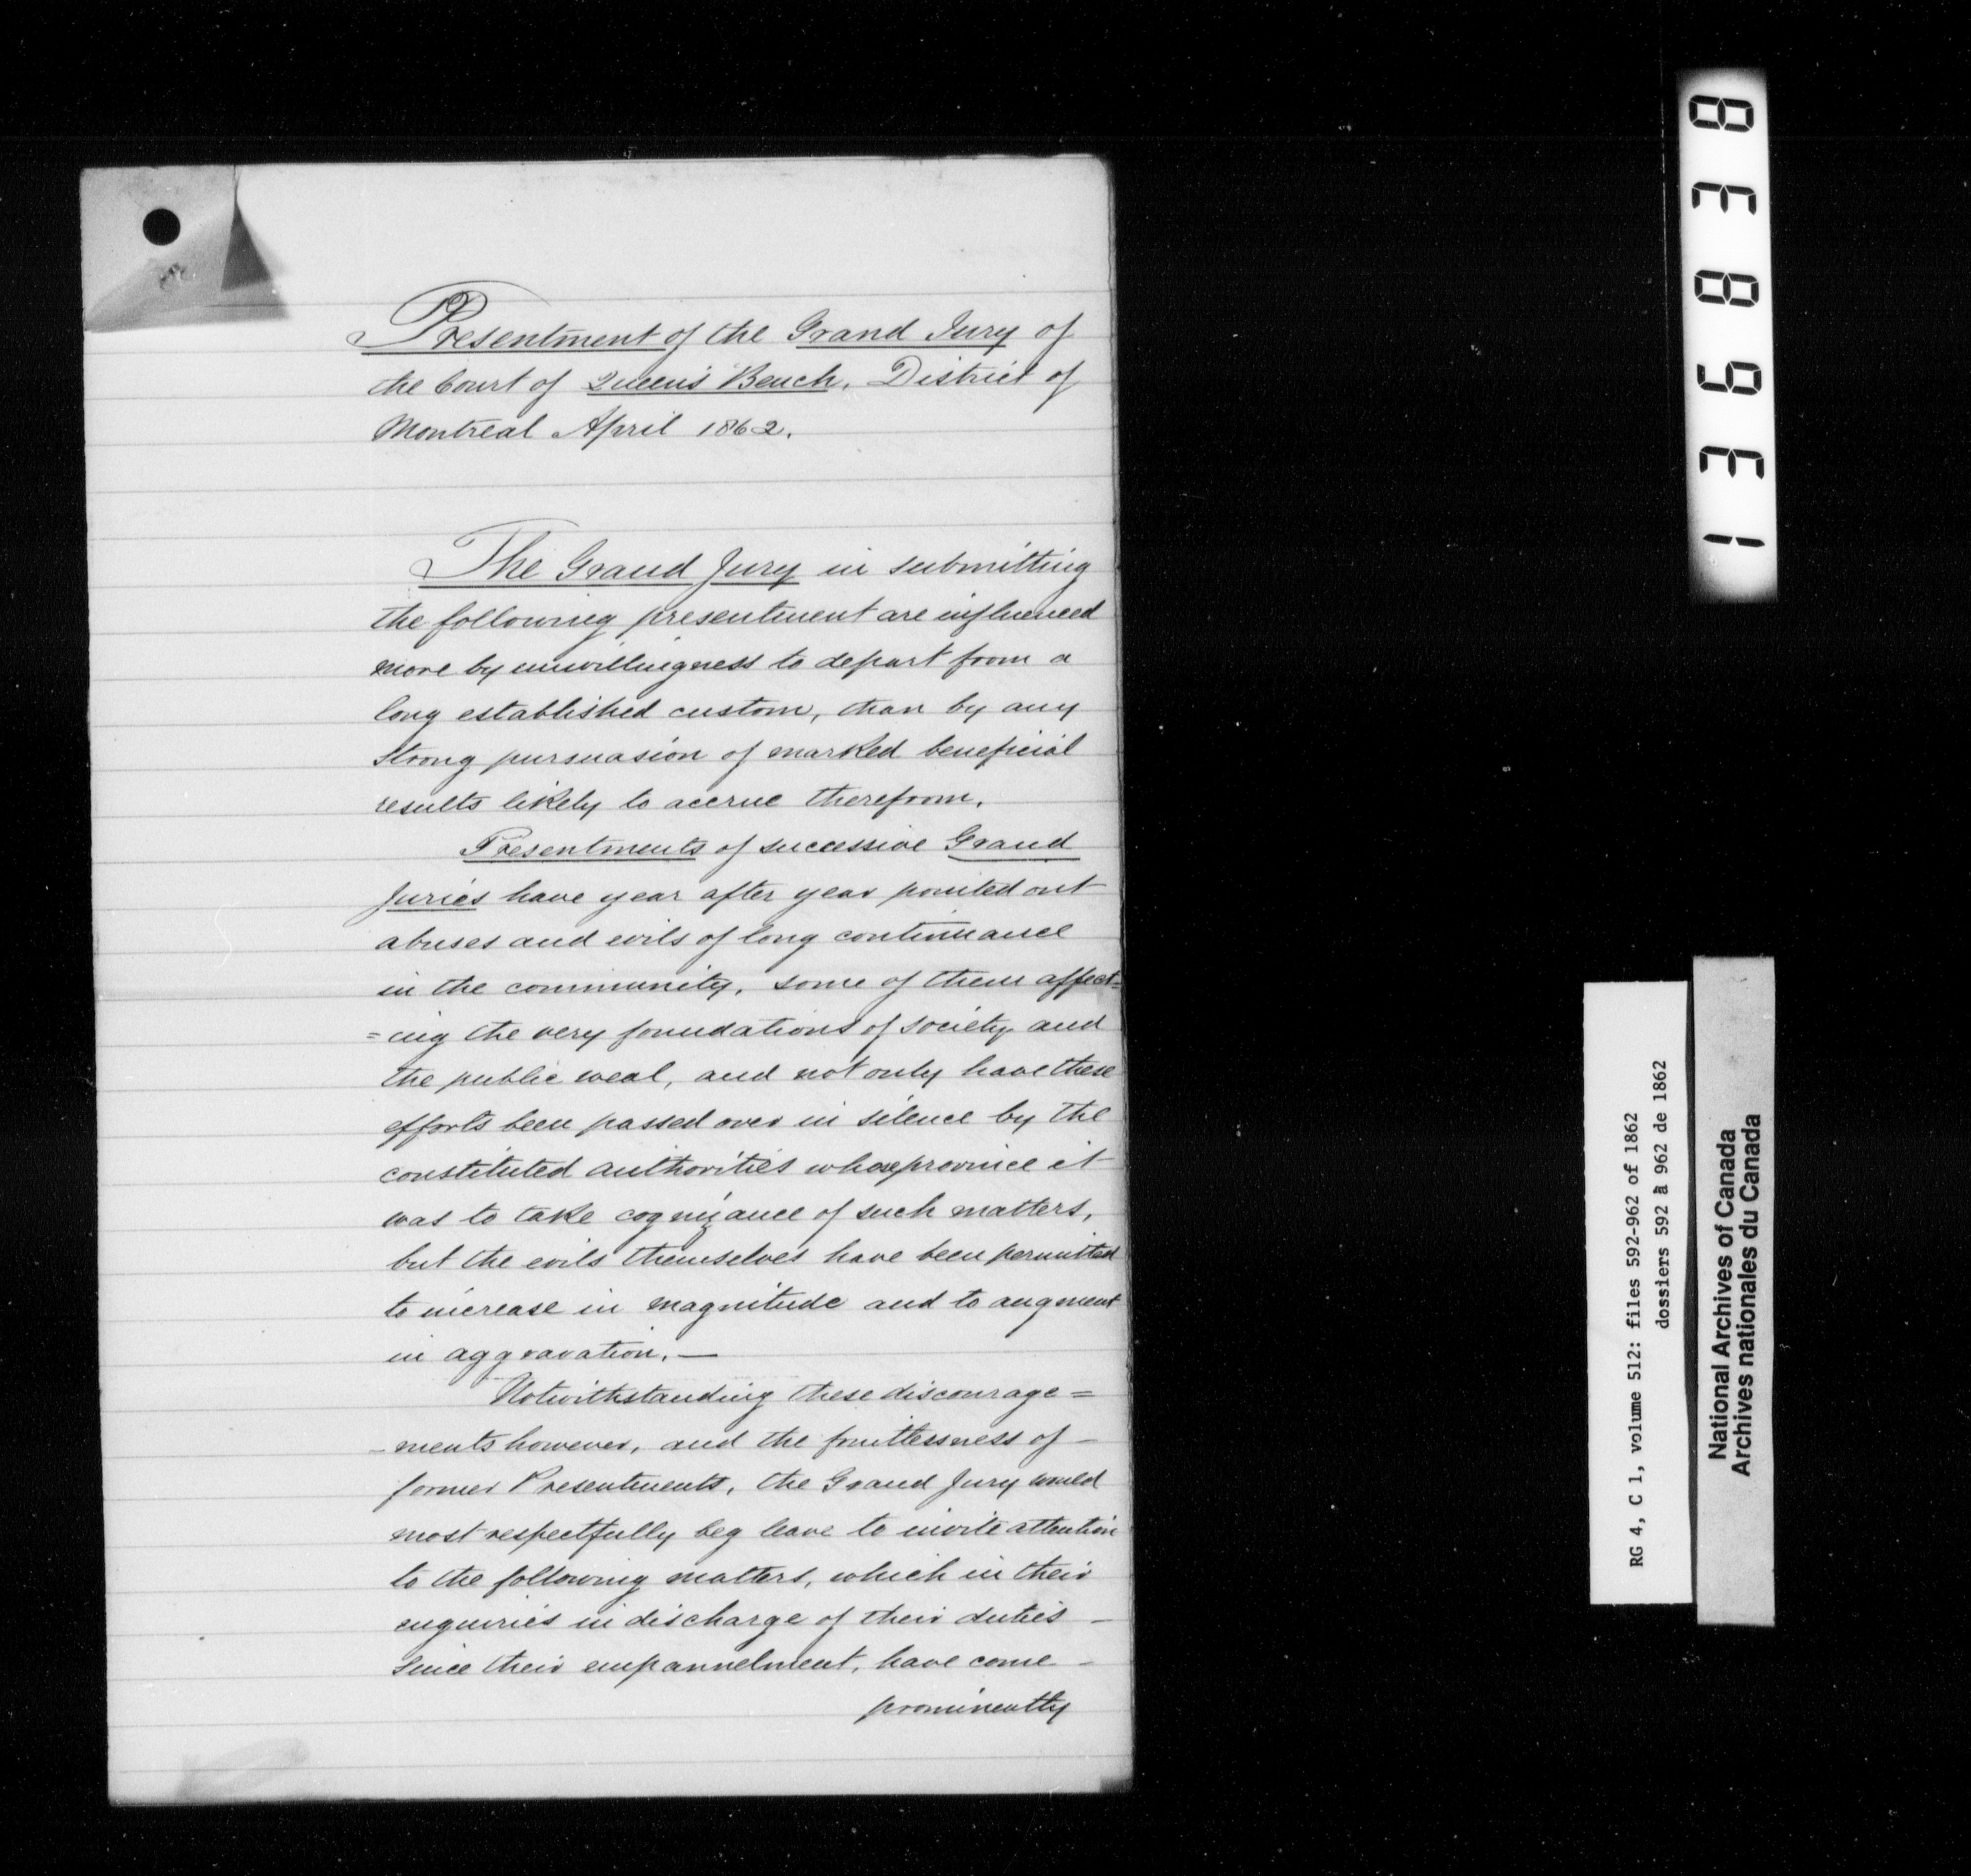 Presentment of the Grand Jury of
the Court of Queen's Bench. District of
Montreal April 1862.
The Grand Jury in submitting
the following presentment are influenced
more by unwillingness to depart from a
long established custom, than by any
strong pursuasion of marked beneficial
results likely to accrue therefrom.
Presentments of successive Grand
Juries have year after year pointed out
abuses and evils of long continuance
in the community, some of them affect=
=ing the very foundations of society and
the public weal, and not only have these
efforts been passed over in silence by the
constituted authorities whose province it
was to take cognizance of such matters,
but the evils themselves have been permitted
to increase in magnitude and to augment
in aggravation. —
Notwithstanding these discourage=
-ments however, and the fruitlessness of -
former Presentments, the Grand Jury would
most respectfully beg leave to invite attention
to the following matters, which in their
enquiries in discharge of their duties -
since their empannelment, have come -
prominently
136838
RG 4, C 1, volume 512: files 592-962 of 1862
dossiers 592 à 962 de 1862
National Archives of Canada
Archives nationales du Canada